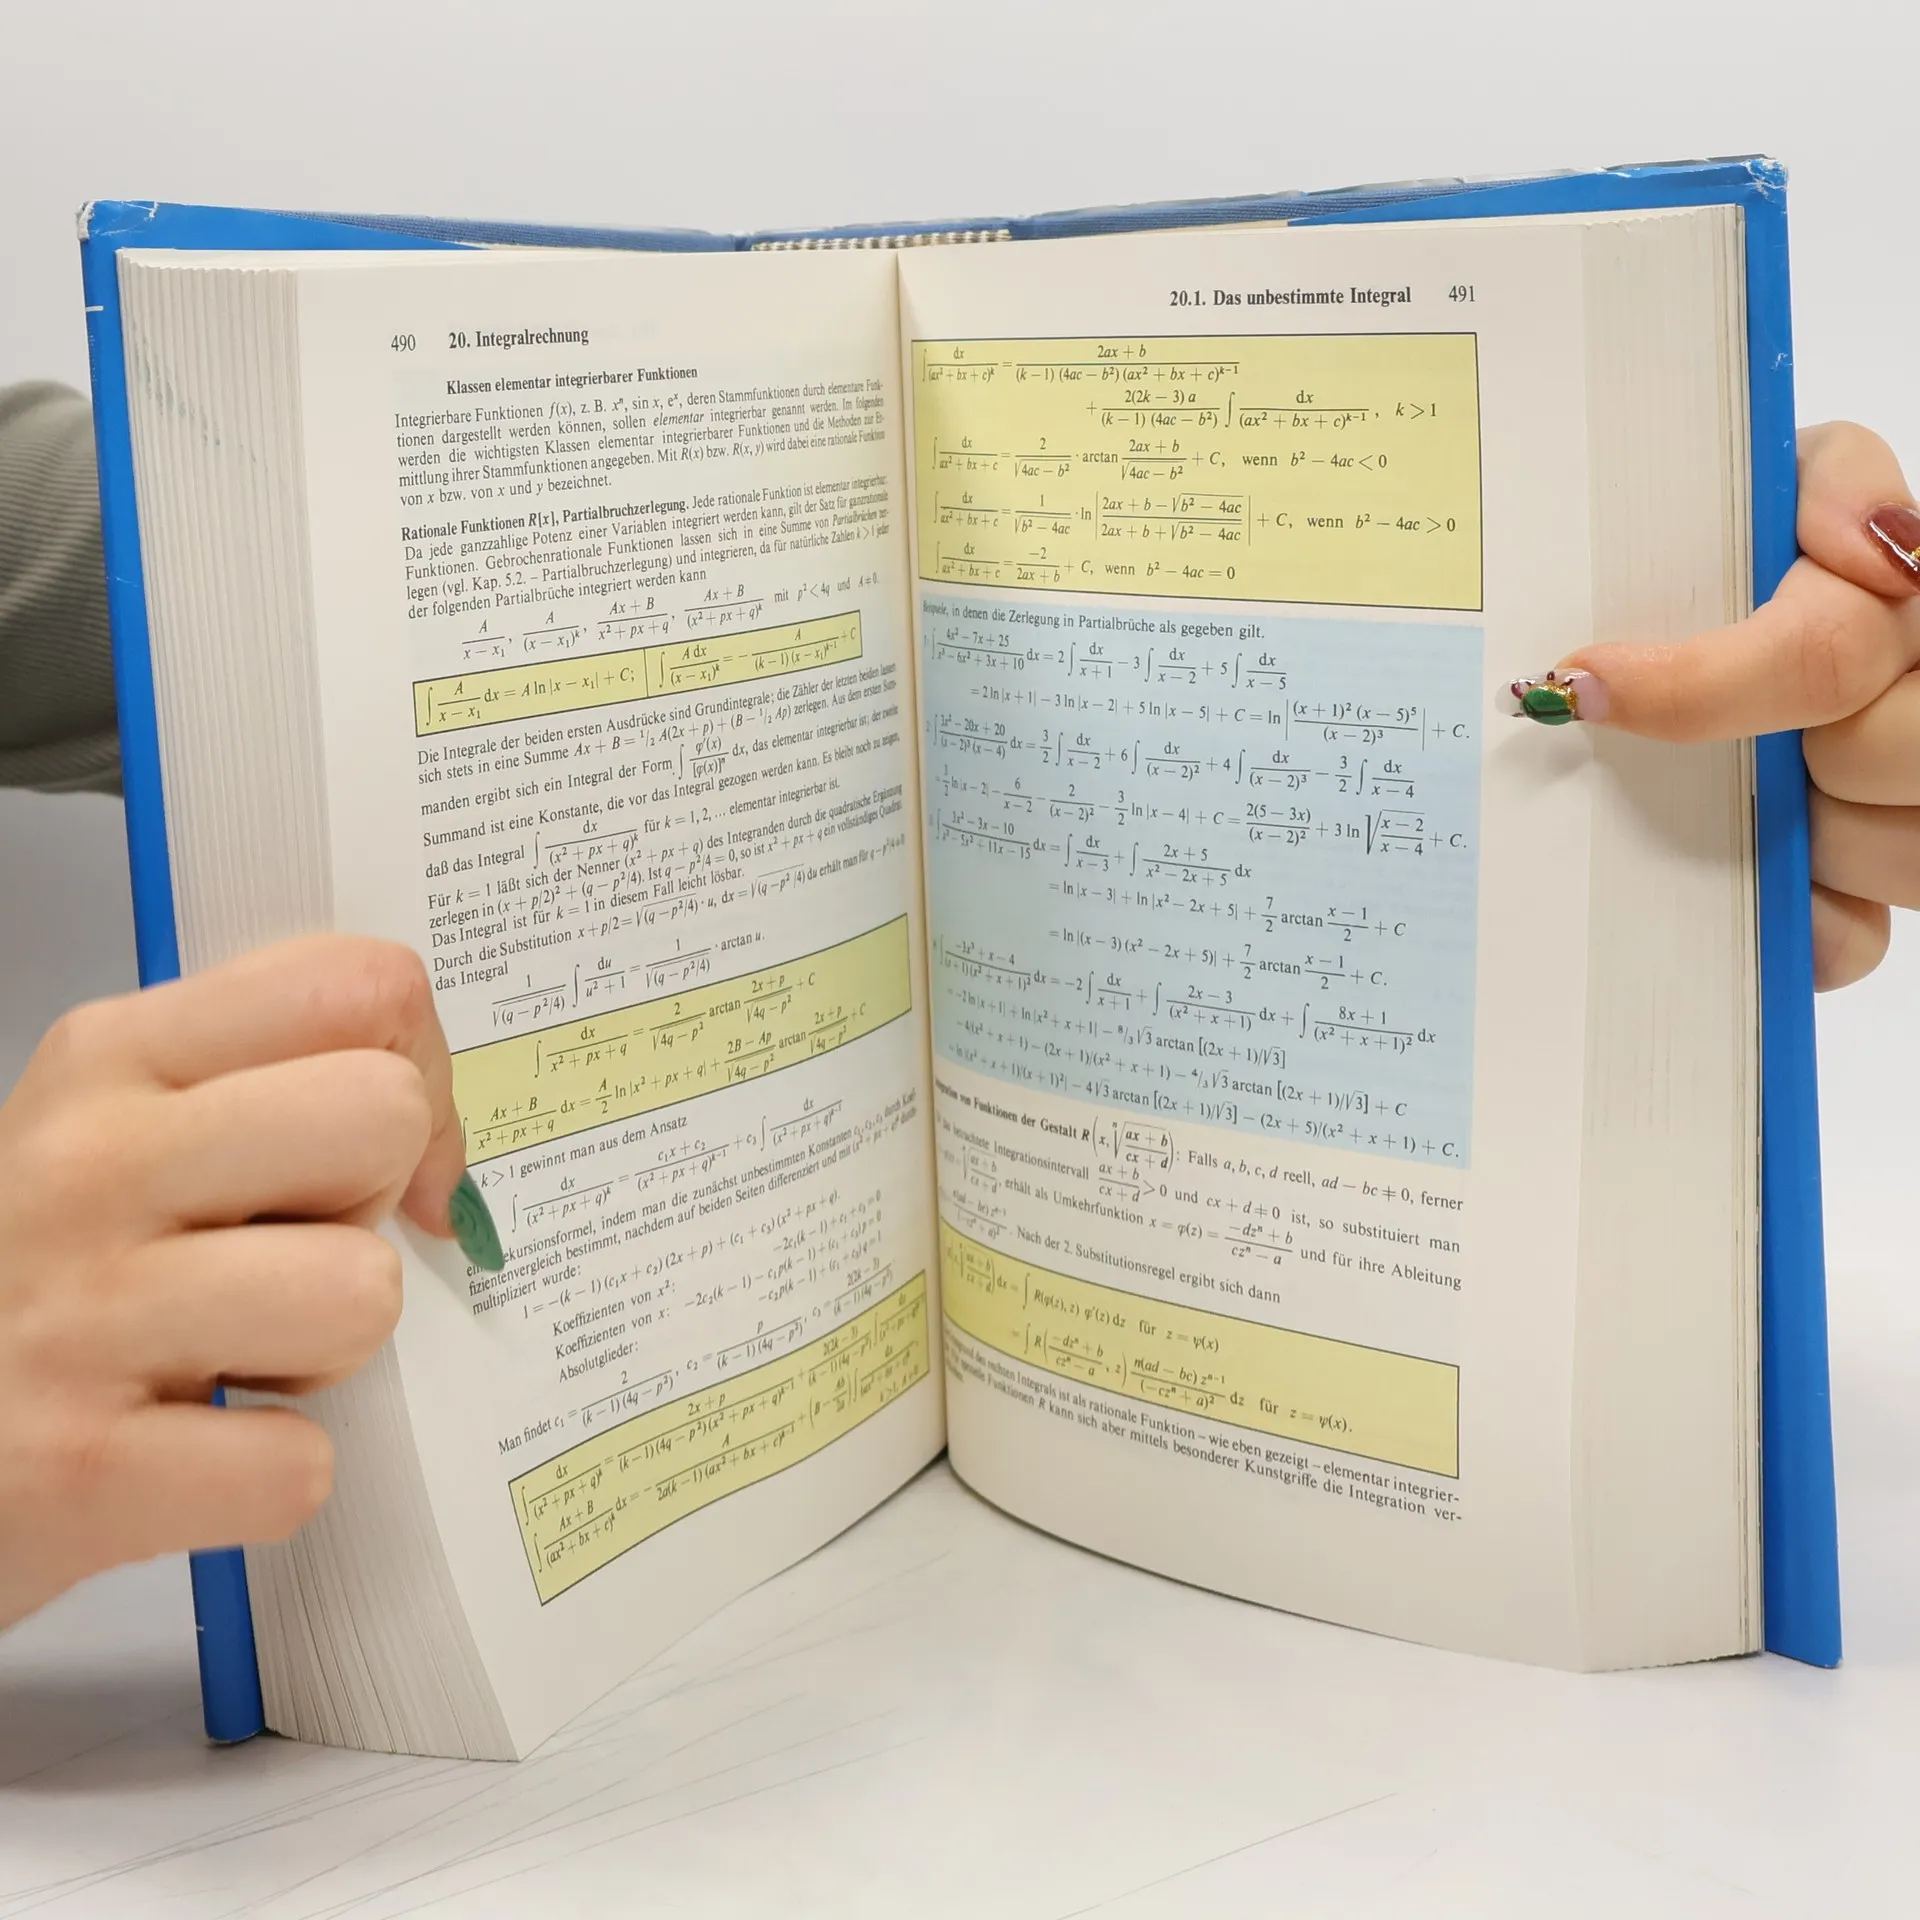 490 20. Integralrechnung
Klassen elementar integrierbarer Funktionen
Integrierbare Funktionen f(x), z. B. xⁿ, sin x, eˣ, deren Stammfunktionen durch elementare Funk-
tionen dargestellt werden können, sollen elementar integrierbar genannt werden. Im folgenden
werden die wichtigsten Klassen elementar integrierbarer Funktionen und die Methoden zur Er-
mittlung ihrer Stammfunktionen angegeben. Mit R(x) bzw. R(x, y) wird dabei eine rationale Funktion
von x bzw. von x und y bezeichnet.
Rationale Funktionen R[x], Partialbruchzerlegung. Jede rationale Funktion ist elementar integrierbar.
Da jede ganzzahlige Potenz einer Variablen integriert werden kann, gilt der Satz für ganzrationale
Funktionen. Gebrochenrationale Funktionen lassen sich in eine Summe von Partialbrüchen zer-
legen (vgl. Kap. 5.2. – Partialbruchzerlegung) und integrieren, da für natürliche Zahlen k > 1 jeder
der folgenden Partialbrüche integriert werden kann
A/(x − x₁), A/(x − x₁)ᵏ, (Ax + B)/(x² + px + q), (Ax + B)/(x² + px + q)ᵏ mit p² < 4q und A ≠ 0.
∫ A/(x − x₁) dx = A ln |x − x₁| + C; ∫ A dx/(x − x₁)ᵏ = − A/((k − 1)(x − x₁)ᵏ⁻¹) + C
Die Integrale der beiden ersten Ausdrücke sind Grundintegrale; die Zähler der letzten beiden lassen
sich stets in eine Summe Ax + B = ¹/₂ A(2x + p) + (B − ¹/₂ Ap) zerlegen. Aus dem ersten Sum-
manden ergibt sich ein Integral der Form ∫ φ′(x)/[φ(x)]ⁿ dx, das elementar integrierbar ist; der zweite
Summand ist eine Konstante, die vor das Integral gezogen werden kann. Es bleibt noch zu zeigen,
daß das Integral ∫ dx/(x² + px + q)ᵏ für k = 1, 2, ... elementar integrierbar ist.
Für k = 1 läßt sich der Nenner (x² + px + q) des Integranden durch die quadratische Ergänzung
zerlegen in (x + p/2)² + (q − p²/4). Ist q − p²/4 = 0, so ist x² + px + q ein vollständiges Quadrat.
Das Integral ist für k = 1 in diesem Fall leicht lösbar.
Durch die Substitution x + p/2 = √(q − p²/4) · u, dx = √(q − p²/4) du erhält man für q − p²/4 ≠ 0
das Integral
1/√(q − p²/4) ∫ du/(u² + 1) = 1/√(q − p²/4) · arctan u.
∫ dx/(x² + px + q) = 2/√(4q − p²) arctan (2x + p)/√(4q − p²) + C
∫ (Ax + B)/(x² + px + q) dx = A/2 ln |x² + px + q| + (2B − Ap)/√(4q − p²) arctan (2x + p)/√(4q − p²) + C
k > 1 gewinnt man aus dem Ansatz
∫ dx/(x² + px + q)ᵏ = (c₁x + c₂)/(x² + px + q)ᵏ⁻¹ + c₃ ∫ dx/(x² + px + q)ᵏ⁻¹
ekursionsformel, indem man die zunächst unbestimmten Konstanten c₁, c₂, c₃ durch Koef-
fizientenvergleich bestimmt, nachdem auf beiden Seiten differenziert und mit (x² + px + q)ᵏ durch-
multipliziert wurde:
1 = −(k − 1)(c₁x + c₂)(2x + p) + (c₁ + c₃)(x² + px + q).
Koeffizienten von x²: −2c₁(k − 1) + c₁ + c₃ = 0
Koeffizienten von x: −2c₂(k − 1) − c₁p(k − 1) + (c₁ + c₃)p = 0
Absolutglieder: −c₂p(k − 1) + (c₁ + c₃)q = 1
Man findet c₁ = 2/((k − 1)(4q − p²)), c₂ = p/((k − 1)(4q − p²)), c₃ = 2(2k − 3)/((k − 1)(4q − p²)).
∫ dx/(x² + px + q)ᵏ = (2x + p)/((k − 1)(4q − p²)(x² + px + q)ᵏ⁻¹) + 2(2k − 3)/((k − 1)(4q − p²)) ∫ dx/(x² + px + q)ᵏ⁻¹
∫ (Ax + B)/(ax² + bx + c)ᵏ dx = − A/(2a(k − 1)(ax² + bx + c)ᵏ⁻¹) + (B − Ab/2a) ∫ dx/(ax² + bx + c)ᵏ
20.1. Das unbestimmte Integral 491
∫ dx/(ax² + bx + c)ᵏ = (2ax + b)/((k − 1)(4ac − b²)(ax² + bx + c)ᵏ⁻¹)
+ 2(2k − 3)a/((k − 1)(4ac − b²)) ∫ dx/(ax² + bx + c)ᵏ⁻¹, k > 1
∫ dx/(ax² + bx + c) = 2/√(4ac − b²) · arctan (2ax + b)/√(4ac − b²) + C, wenn b² − 4ac < 0
∫ dx/(ax² + bx + c) = 1/√(b² − 4ac) · ln |(2ax + b − √(b² − 4ac))/(2ax + b + √(b² − 4ac))| + C, wenn b² − 4ac > 0
∫ dx/(ax² + bx + c) = −2/(2ax + b) + C, wenn b² − 4ac = 0
Beispiele, in denen die Zerlegung in Partialbrüche als gegeben gilt.
1: ∫ (4x² − 7x + 25)/(x³ − 6x² + 3x + 10) dx = 2 ∫ dx/(x + 1) − 3 ∫ dx/(x − 2) + 5 ∫ dx/(x − 5)
= 2 ln |x + 1| − 3 ln |x − 2| + 5 ln |x − 5| + C = ln |(x + 1)² (x − 5)⁵/(x − 2)³| + C.
2: ∫ (3x² − 20x + 20)/((x − 2)³(x − 4)) dx = 3/2 ∫ dx/(x − 2) + 6 ∫ dx/(x − 2)² + 4 ∫ dx/(x − 2)³ − 3/2 ∫ dx/(x − 4)
= 3/2 ln |x − 2| − 6/(x − 2) − 2/(x − 2)² − 3/2 ln |x − 4| + C = 2(5 − 3x)/(x − 2)² + 3 ln √((x − 2)/(x − 4)) + C.
3: ∫ (3x² − 3x − 10)/(x³ − 5x² + 11x − 15) dx = ∫ dx/(x − 3) + ∫ (2x + 5)/(x² − 2x + 5) dx
= ln |x − 3| + ln |x² − 2x + 5| + 7/2 arctan (x − 1)/2 + C
= ln |(x − 3)(x² − 2x + 5)| + 7/2 arctan (x − 1)/2 + C.
4: ∫ (−3x³ + x − 4)/((x + 1)(x² + x + 1)²) dx = −2 ∫ dx/(x + 1) + ∫ (2x − 3)/(x² + x + 1) dx + ∫ (8x + 1)/(x² + x + 1)² dx
= −2 ln |x + 1| + ln |x² + x + 1| − ⁸/₃ √3 arctan [(2x + 1)/√3]
− 4/(x² + x + 1) − (2x + 1)/(x² + x + 1) − ⁴/₃ √3 arctan [(2x + 1)/√3] + C
= ln |(x² + x + 1)/(x + 1)²| − 4√3 arctan [(2x + 1)/√3] − (2x + 5)/(x² + x + 1) + C.
Integration von Funktionen der Gestalt R(x, ⁿ√((ax + b)/(cx + d))): Falls a, b, c, d reell, ad − bc ≠ 0, ferner
betrachtete Integrationsintervall (ax + b)/(cx + d) > 0 und cx + d ≠ 0 ist, so substituiert man
= ⁿ√((ax + b)/(cx + d)), erhält als Umkehrfunktion x = φ(z) = (−dzⁿ + b)/(czⁿ − a) und für ihre Ableitung
n(ad − bc) zⁿ⁻¹/(−czⁿ + a)². Nach der 2. Substitutionsregel ergibt sich dann
∫ R(x, ⁿ√((ax + b)/(cx + d))) dx = ∫ R(φ(z), z) φ′(z) dz für z = ψ(x)
= ∫ R((−dzⁿ + b)/(czⁿ − a), z) n(ad − bc) zⁿ⁻¹/(−czⁿ + a)² dz für z = ψ(x).
des rechten Integrals ist als rationale Funktion – wie eben gezeigt – elementar integrier-
Für spezielle Funktionen R kann sich aber mittels besonderer Kunstgriffe die Integration ver-